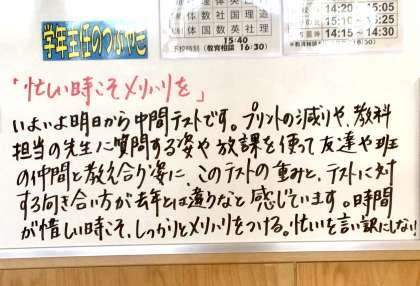 学年主任のつぶやき
体数社国理道
体国数英社理
15:40
下校時刻（教育相談 16:30）
14:20 ～ 15:05
14:15 ～ 14:25
14:30 ～ 15:15
15:25
「忙しい時こそメリハリを」
いよいよ明日から中間テストです。プリントの減りや、教科
担当の先生に質問する姿や放課を使って友達や班
の仲間と教え合う姿に、このテストの重みと、テストに対
する向き合い方が去年とは違うなと感じています。時間
が惜しい時こそ、しっかりとメリハリをつける。忙しいを言い訳にしない！